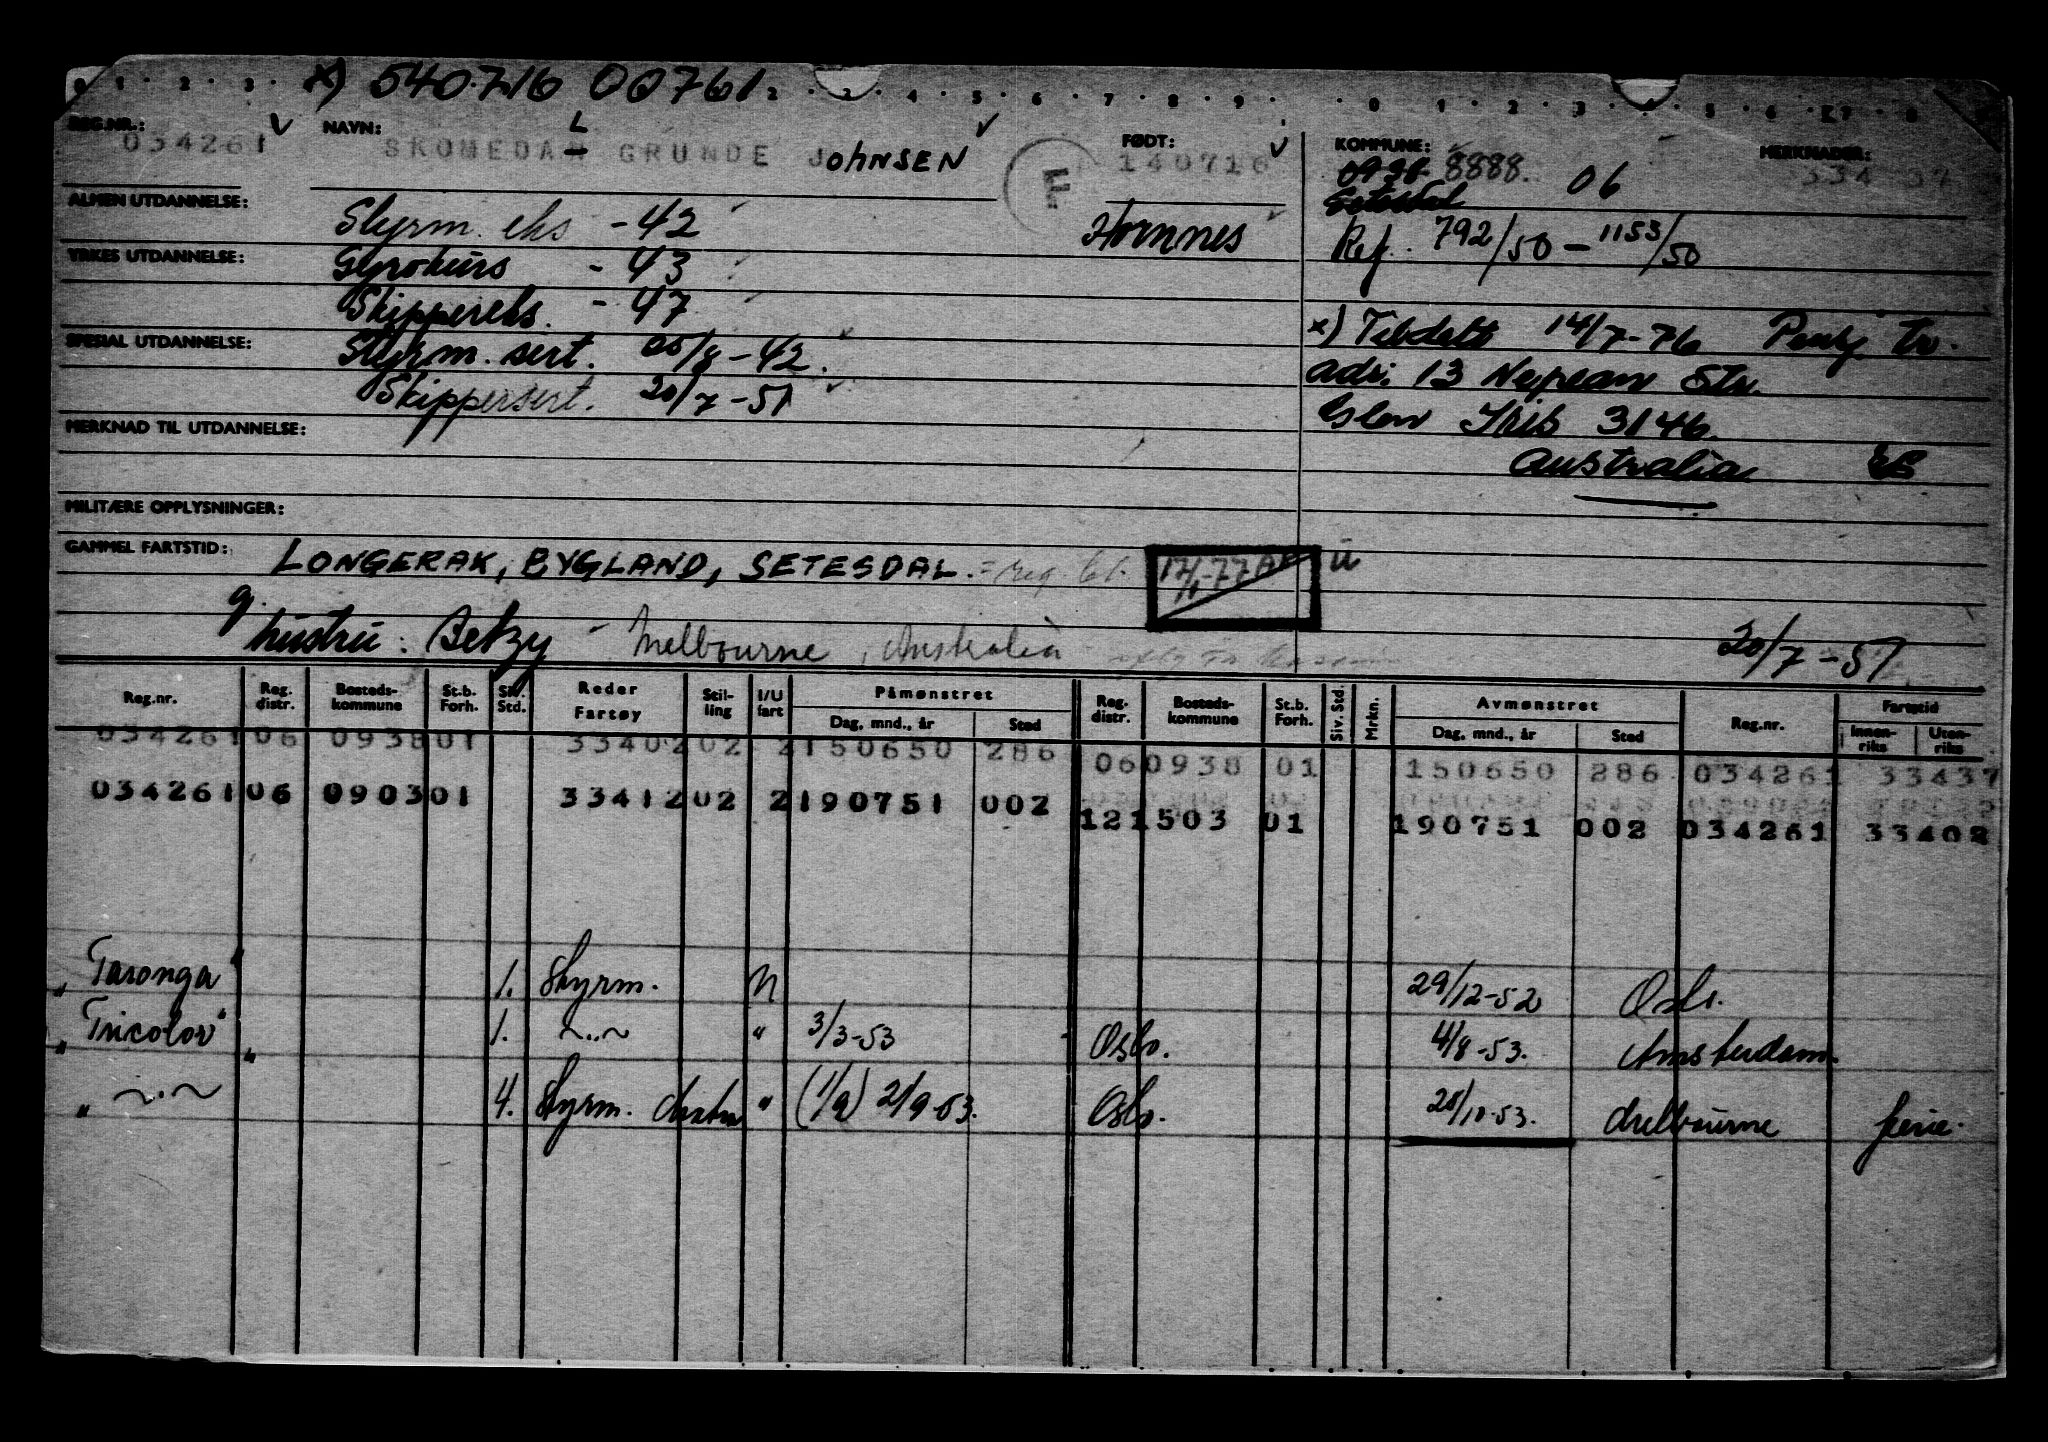 x) 540716 00761
REG.NR.: NAVN: L FØDT: KOMMUNE: MERKNADER:
034261 SKOMEDAL GRUNDE JOHNSEN F. 140716 8888. 06 334 37
ALMEN UTDANNELSE: Styrm. eks - 42 Hornnes Setesdal
Ref. 792/50 - 1153/50
YRKES UTDANNELSE: Gyrokurs - 43
Skippereks. - 47
x) Tildelt 14/7-76 Pensj tr.
SPESIAL UTDANNELSE: Styrm. sert. 25/8-42.
adr: 13 Nepean Str.
Skippersert. 20/7-51
Glen Iris 3146.
MERKNAD TIL UTDANNELSE:
Australia
MILITÆRE OPPLYSNINGER:
GAMMEL FARTSTID: LONGERAK, BYGLAND, SETESDAL. 17/1-77 ü
g.
hustru: Betzy - Melbourne, Australia 20/7-51
Reg.nr. Reg. distr. Bosteds-kommune St.b. Forh. Siv. Std. Reder Fartøy Stil-ling I/U fart Påmønstret Dag, mnd., år Sted Reg. distr. Bosteds-kommune St.b. Forh. Siv. Std. Mrkn. Avmønstret Dag, mnd., år Sted Reg.nr. Fartstid Innen-riks Uten-riks
034261 06 0938 01 33402 02 2 150650 286 06 0938 01 150650 286 034261 33437
034261 06 0903 01 33412 02 2 190751 002 12 1503 01 190751 002 034261 33402
"Taronga" 1. Styrm. U 29/12-52 Oslo.
"Tricolor" 1. ~..~ " 3/3-53 Oslo. 4/8-53. Amsterdam.
" ~.~ " 4. Styrm. " (1/9) 2/9-53. Oslo. 28/10-53. Melbourne ferie.